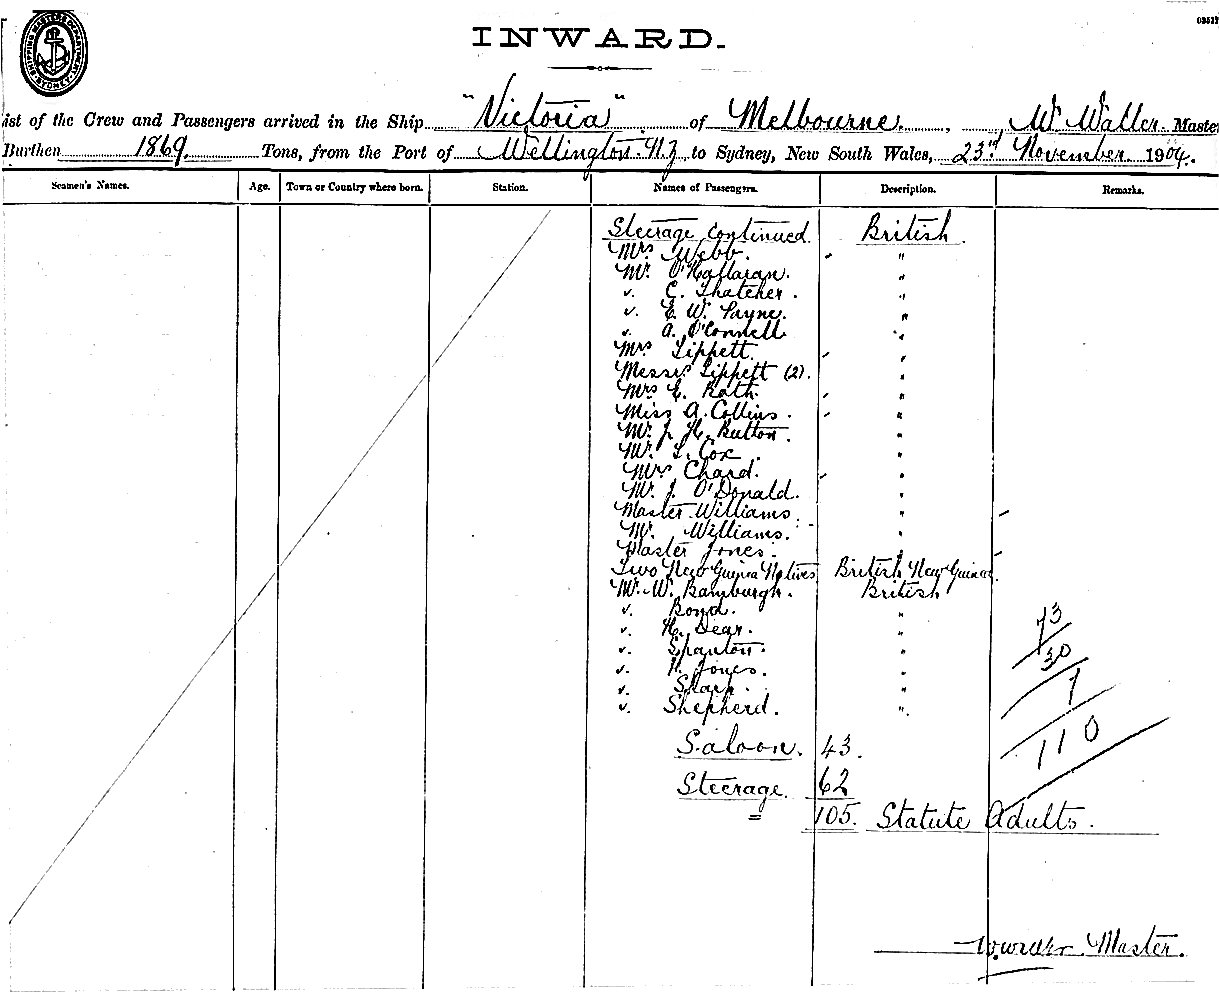 SHIPPING MASTER'S DEPARTMENT SYDNEY
INWARD.
ist of the Crew and Passengers arrived in the Ship "Victoria" of Melbourne, W Waller Master
Burthen 1869. Tons, from the Port of Wellington. N.Z to Sydney, New South Wales, 23rd November 1904.
Seamen's Names. Age. Town or Country where born. Station. Names of Passengers. Description. Remarks.
Steerage continued British
Mrs Webb. "
Mr. O'Hallaran. "
v. C. Thatcher. "
v. E. W. Payne. "
v. A. O'Connell "
Mrs Lippett. "
Messrs Lippett (2). "
Mrs E. Rath. "
Miss A. Collins. "
Mr. J. H. Button. "
Mr. L. Cox. "
Mrs Chard. "
Mr. J. O'Donald. "
Master Williams. "
Mr. Williams. "
Master Jones. "
Two New Guinea Natives British New Guinea.
Mr. W. Bamburgh. British
v. Bond. "
v. H. Dear. "
v. Spanton. "
v. H. Jones. "
v. Sharp. "
v. Shepherd. "
73
30
7
110
Saloon. 43.
Steerage. 62
= 105. Statute Adults.
Master.